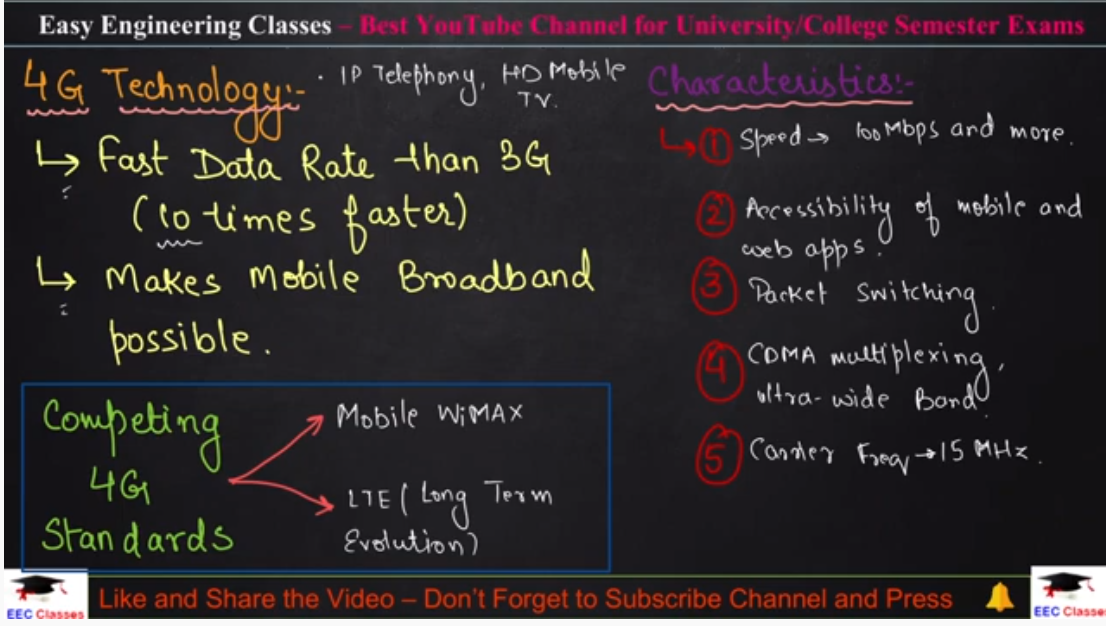 Easy Engineering Classes – Best YouTube Channel for University/College Semester Exams
4G Technology:-
· IP Telephony, HD Mobile
TV.
↳ Fast Data Rate than 3G
(10 times faster)
↳ Makes Mobile Broadband
possible.
Competing
4G
Standards
Mobile WiMAX
LTE (Long Term
Evolution)
Characteristics:-
↳ 1 Speed → 100 Mbps and more.
2 Accessibility of mobile and
web apps.
3 Packet switching.
4 CDMA multiplexing,
ultra-wide Band.
5 Carrier Freq → 15 MHz.
EEC Classes
Like and Share the Video – Don't Forget to Subscribe Channel and Press
EEC Classes